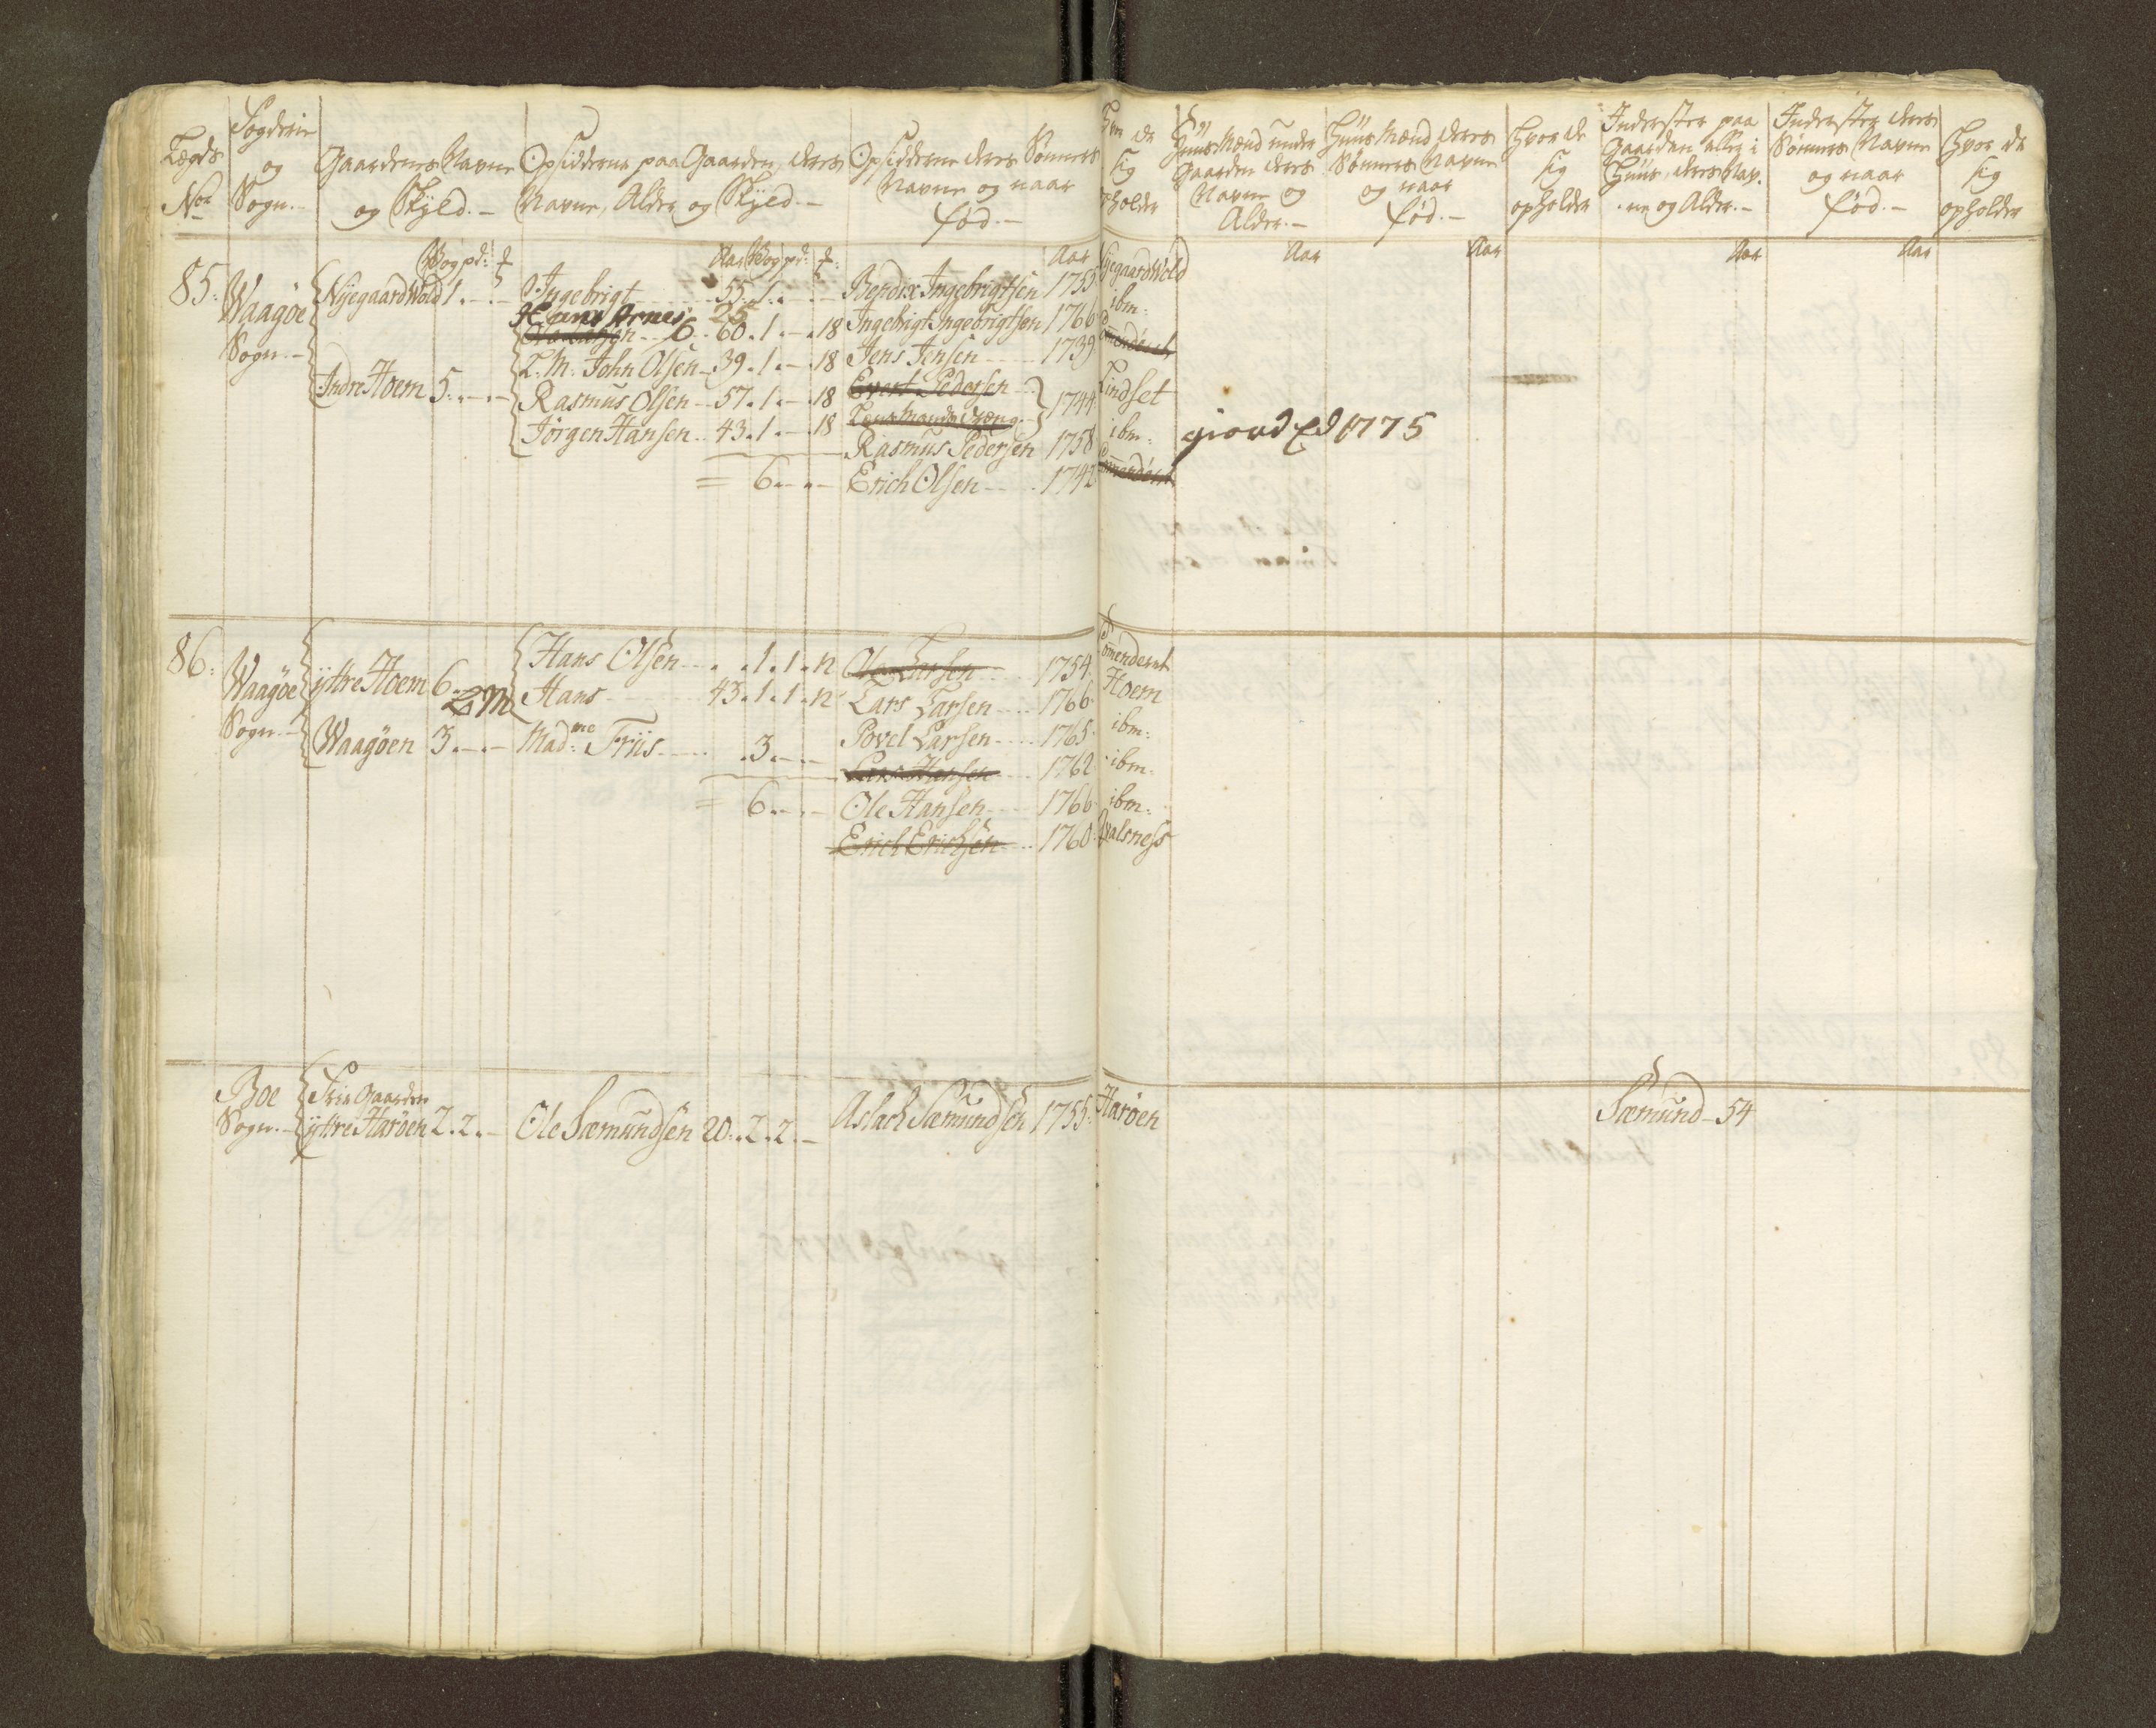 Lægds No
Sogderie og Sogn.
Gaardenes Navne og Skyld.
Opsidderne paa Gaarden, deres Navne, Alder og Skyld.
Opsidderne deres Sønners Navne og naar fød.
Hvor de sig opholder
Huus Mænd under Gaarden deres Navne og Alder.
Huus Mænd deres Sønners Navne og naar fød.
Hvor de sig opholder
Inderster paa Gaarden eller i Huus, deres Navne og Alder.
Inderster deres Sønners Navne og naar fød.
Hvor de sig opholder
Wog pd: Aar Wog pd: Aar Aar Aar Aar Aar
85. Waagøe Sogn.
Nÿegaard Wold 1.
Ingebrigt 55. 1. Bendix Ingebrigtsen 1755 Nÿegaard Wold
Hans Arnes 25
60. 1. 18 Ingebrigt Ingebrigtsen 1766 ibm:
L. M. John Olsen 39. 1. 18 Jens Jensen 1739
Indre Hoem 5.
Rasmus Olsen 57. 1. 18 Evert Pedersen 1744 Lindset
Jørgen Hansen 43. 1. 18
Rasmus Pedersen 1758 ibm: giord Ed 1775
= 6 Erich Olsen 1742
86. Waagøe Sogn.
ÿttre Hoem 6. LM
Hans Olsen 1. 1. 12 Ole Larsen 1754
Hans 43. 1. 1. 12 Lars Larsen 1766 Hoem
Waagøen 3. Madme Friis 3. Povel Larsen 1765 ibm:
Lars Hansen 1762 ibm:
= 6 Ole Hansen 1766 ibm:
Erich Erichsen 1760 Qvalsness
Boe Sogn.
Frie Gaarden
ÿttre Harøen 2. 2. Ole Sæmundsen 20. 2. 2. Aslach Sæmundsen 1755 Harøen Sæmund 54